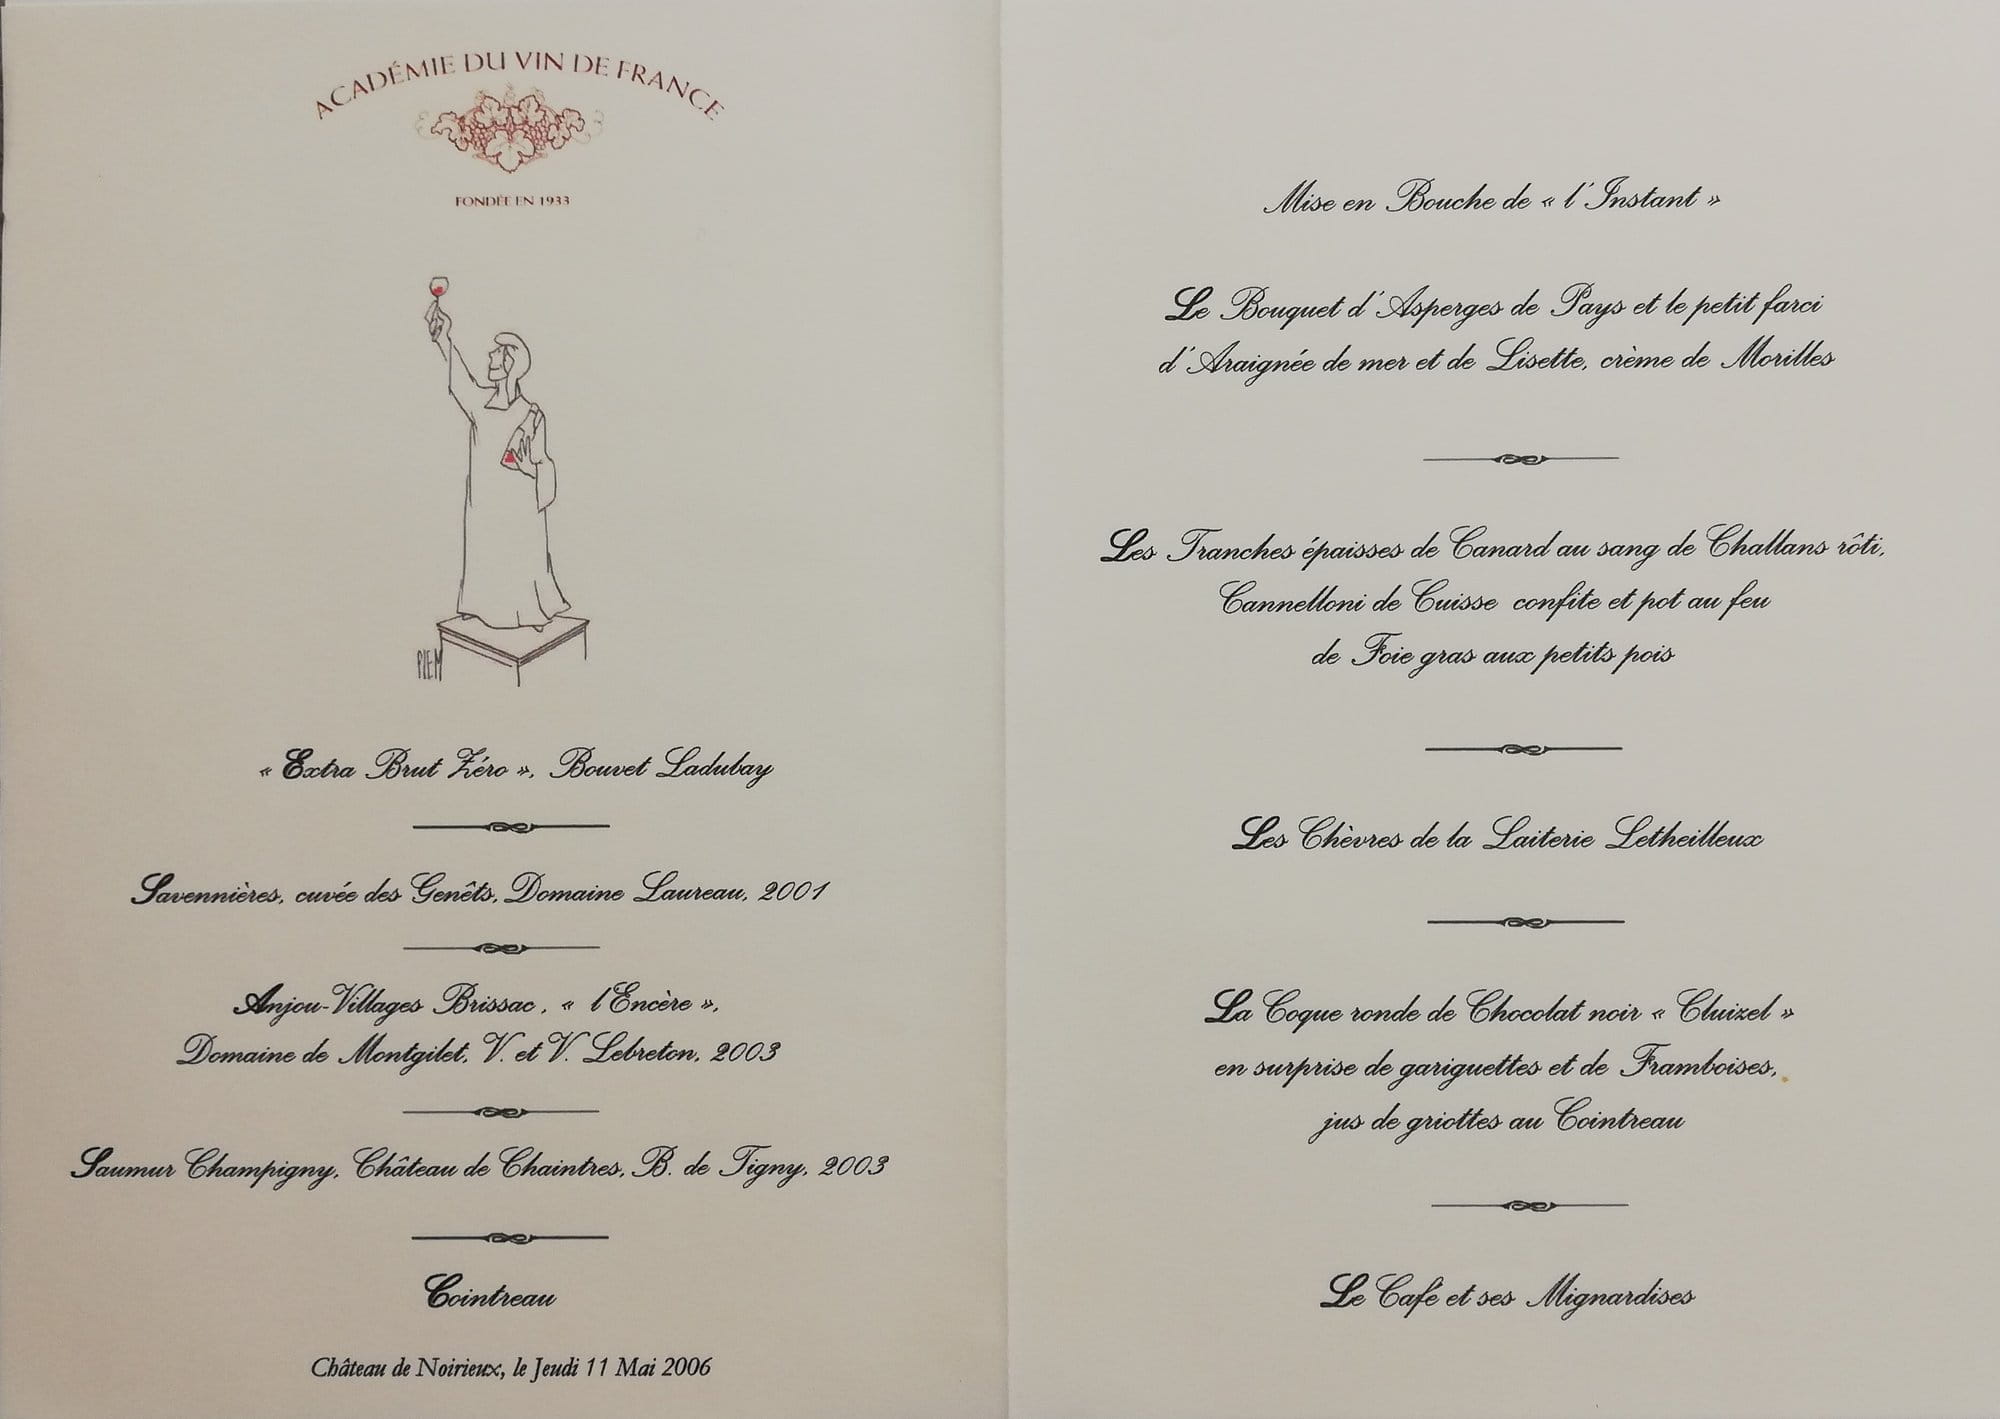 ACADÉMIE DU VIN DE FRANCE
FONDÉE EN 1933
PIEM
« Extra Brut Zéro », Bouvet Ladubay
Savennières, cuvée des Genêts, Domaine Laureau, 2001
Anjou-Villages Brissac, « l'Encère »,
Domaine de Montgilet, V. et V. Lebreton, 2003
Saumur Champigny, Château de Chaintres, B. de Tigny, 2003
Cointreau
Château de Noirieux, le Jeudi 11 Mai 2006
Mise en Bouche de « l'Instant »
Le Bouquet d'Asperges de Pays et le petit farci
d'Araignée de mer et de Lisette, crème de Morilles
Les Tranches épaisses de Canard au sang de Challans rôti,
Cannelloni de Cuisse confite et pot au feu
de Foie gras aux petits pois
Les Chèvres de la Laiterie Letheilleux
La Coque ronde de Chocolat noir « Cluizel »
en surprise de gariguettes et de Framboises,
jus de griottes au Cointreau
Le Café et ses Mignardises